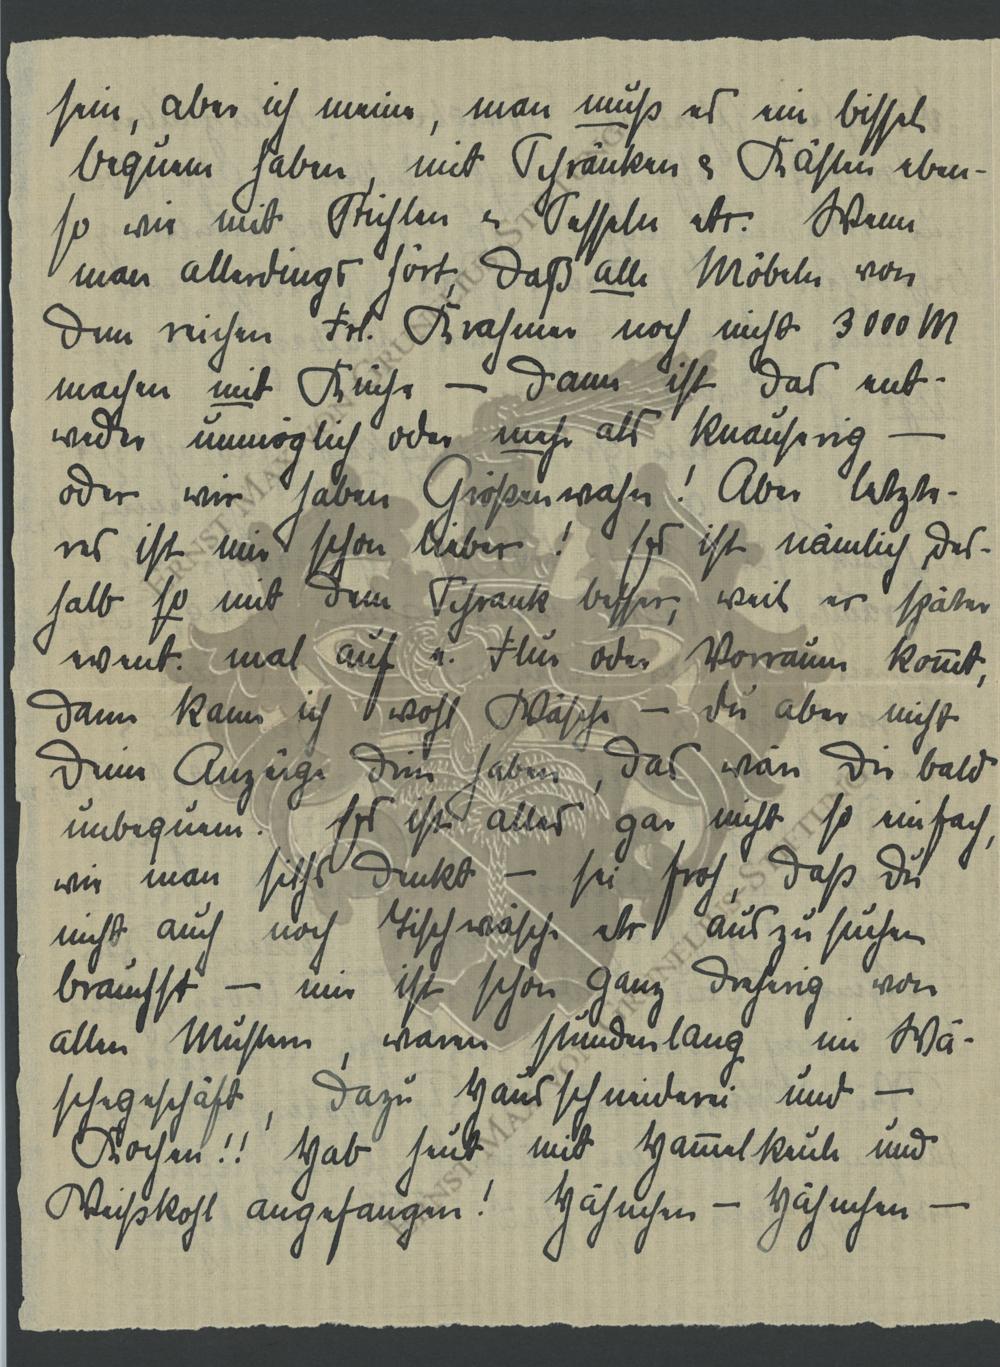 sein, aber ich meine, man muß es ein bissel
bequem haben, mit Schränken & Kästen eben-
so wie mit Stühlen & Sesseln etc. Wenn
man allerdings hört, daß alle Möbeln von
dem reichen Frl. Krahmer noch nicht 3000 M
machen mit Küche — dann ist das ent-
weder unmöglich oder mehr als knauserig —
oder wir haben Größenwahn! Aber letzte-
res ist mir schon lieber! Es ist nämlich des-
halb so mit dem Schrank besser, weil er später
event. mal auf e. Flur oder Vorraum kom̄t,
dann kann ich wohl Wäsche — du aber nicht
Deine Anzüge drin haben, das wär Dir bald
unbequem. Es ist alles gar nicht so einfach,
wie man sichs denkt — sei froh, daß Du
nicht auch noch Tischwäsche etc auszusuchen
brauchst — mir ist schon ganz dreherig von
allen Mustern, waren stundenlang im Wä-
schegeschäft, dazu Hausschneiderei und —
Kochen!! Hab heut mit Ham̄elkeule und
Weißkohl angefangen! Hähnchen — Hähnchen —